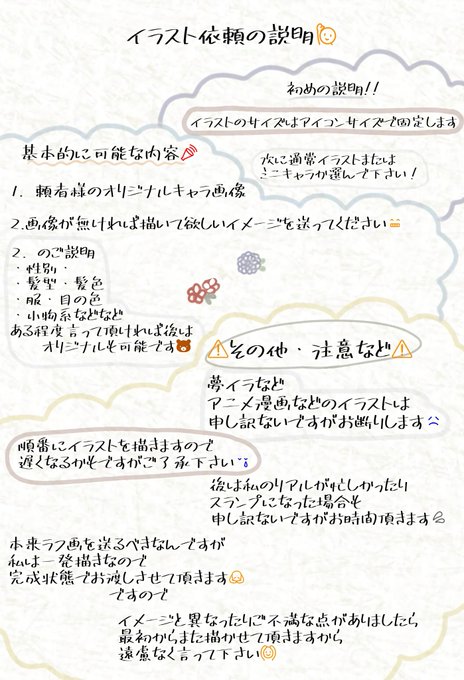 イラスト依頼の説明
初めの説明!!
イラストのサイズはアイコンサイズで固定します
基本的に可能な内容
次に通常イラストまたは
ミニキャラか選んで下さい!
1. 頼者様のオリジナルキャラ画像
2.画像が無ければ描いて欲しいイメージを送ってください
2. のご説明
・性別・
・髪型・髪色
・服・目の色
・小物系などなど
ある程度言って頂ければ後は
オリジナルも可能です
⚠その他・注意など⚠
夢イラなど
アニメ漫画などのイラストは
申し訳ないですがお断りします
順番にイラストを描きますので
遅くなるかもですがご了承下さい
後は私のリアルが忙しかったり
スランプになった場合も
申し訳ないですがお時間頂きます
本来ラフ画を送るべきなんですが
私は一発描きなので
完成状態でお渡しさせて頂きます
ですので
イメージと異なったりご不満な点がありましたら
最初からまた描かせて頂きますから
遠慮なく言って下さい